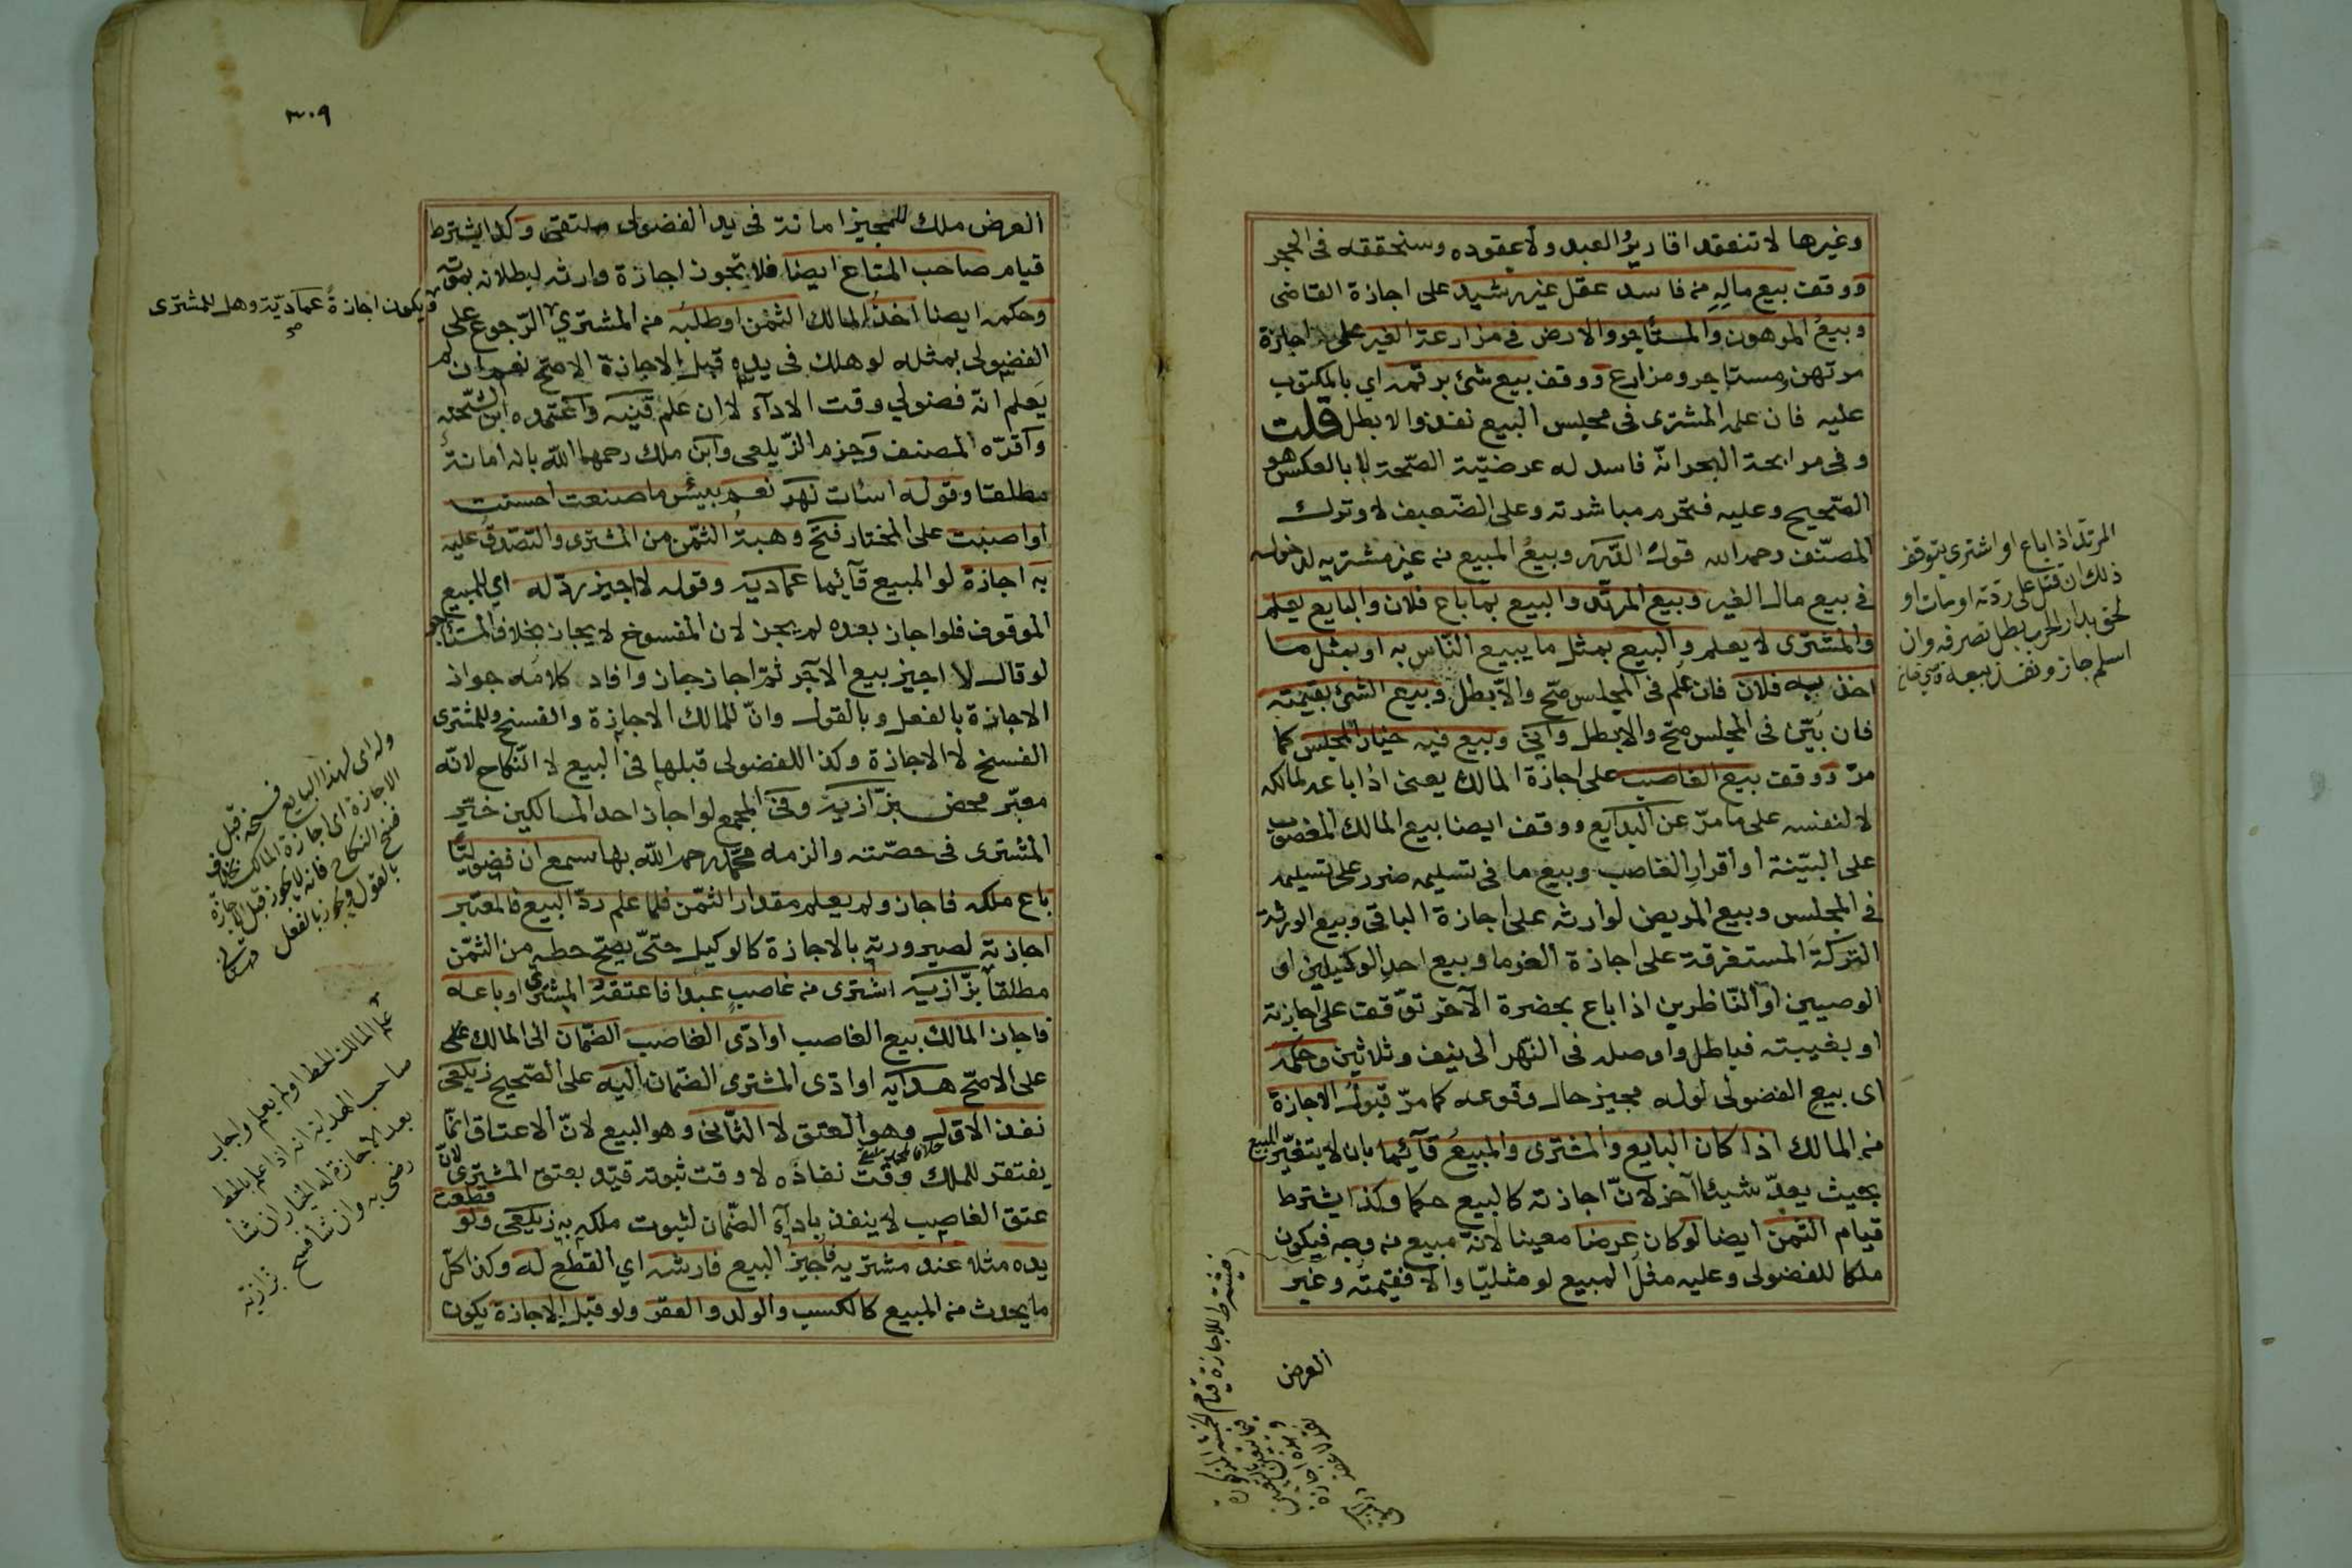 وغيرها لا تنعقد اقارير العبد ولا عقوده وسنحققه في الحجر
ووقف بيع ماله من فاسد عقل غير رشيد على اجازة القاضى
وبيع المرهون والمستاجر والارض في مزارعة الغير على اجازة
مرتهن ومستاجر ومزارع ووقف بيع شئ برقمه اي بالمكتوب
عليه فان علم المشترى فى مجلس البيع نفذ والا بطل قلت
وفي مرابحة البحر انّه فاسد له عرضيّة الصّحة لا بالعكس هو
الصّحيح وعليه فتحرم مباشرته وعلى الضّعيف لا وترك
المصنّف رحمه الله قول الدّرر وبيع المبيع من غير مشتريه لدخوله
في بيع مال الغير وبيع المرتّد والبيع بما باع فلان والبايع يعلم
والمشترى لا يعلم والبيع بمثل ما يبيع النّاس به او بمثل ما
اخذ به فلان فان علم فى المجلس صّح والّا بطل وبيع الشئ بقيمته
فان بيّن فى المجلس صّح والا بطل وبيع فيه خيار المجلس كما
مرّ ووقف بيع الغاصب على اجازة المالك يعنى اذا باعه لمالكه
لا لنفسه على ما مرّ عن البدايع ووقف ايضا بيع المالك المغصوب
على البيّنة او اقرار الغاصب وبيع ما فى تسليمه ضرر على تسليمه
في المجلس وبيع المريض لوارثه على اجازة الباقي وبيع الورثة
التركة المستغرقة على اجازة الغرما وبيع احد الوكيلين او
الوصيين او النّاظرين اذا باع بحضرة الآخر توّقف على اجازته
او بغيبته فباطل واوصله فى النّهر الى نيف وثلاثين وحكمه
اى بيع الفضولى لو له مجيز حال وقوعه كما مرّ قبول الاجازة
من المالك اذا كان البايع والمشترى والمبيع قآئما بان لا يتغيّر المبيع
بحيث يعدّ شيئا آخر لانّ اجازته كالبيع حكما وكذا يشترط
قيام الثمن ايضا لو كان عرضا معينا لانّه مبيع من وجه فيكون
ملكا للفضولى وعليه مثل المبيع لو مثليّا والا فقيمته وغير
العرض
المرتّد اذا باع او اشترى يتوقف
ذلك ان قتل على ردّته او مات او
لحق بدار الحرب بطل تصرفه وان
اسلم جاز ونفذ بيعه
فيشترط للاجازة قيام الخمسة
٣٠٩
العرض ملك للمجيز امانة فى يد الفضولى ملتقى وكذا يشترط
قيام صاحب المتاع ايضا فلا تجوز اجازة وارثه لبطلانه بموته
وحكمه ايضا اخذ المالك الثمن او طلبه من المشتري الرّجوع على
الفضولى بمثله لو هلك فى يده قبل الاجازة الاصّح نعم ان لم
يعلم انّه فضولي وقت الادآء لا ان علم قنيه واعتمده ابن الشّحنه
واقرّه المصنف وجزم الزّيلعى وابن ملك رحمهما اللّه بانه امانة
مطلقا وقوله اسأت نهر نعم بيئس ما صنعت احسنت
او اصبت على المختار فتح وهبة الثمّن من المشترى والتصّدق عليه
به اجازة لو المبيع قآئما عماديّة وقوله لا اجيز ردّ له اي للبيع
الموقوف فلو اجاز بعده لم يجز لان المفسوخ لا يجاز بخلاف المستاجر
لو قال لا اجيز بيع الآجر ثمّ اجاز جاز وافاد كلامه جواز
الاجازة بالفعل وبالقول وانّ للمالك الاجازة والفسخ وللمشترى
الفسخ لا الاجازة وكذا للفضولى قبلها فى البيع لا النّكاح لانّه
معبّر محض بزّازية وفى المجمع لو اجاز احد المالكين خيّر
المشترى فى حصّته والزمه محمّد رحمه اللّه بها سمع ان فضوليّا
باع ملكه فاجاز ولم يعلم مقدار الثمّن فلما علم ردّ البيع فالمعتبر
اجازته لصيرورته بالاجازة كالوكيل حتّى يصّح حطه من الثمّن
مطلقاً بزّازيه اشترى من غاصب عبدا فاعتقه المشترى او باعه
فاجاز المالك بيع الغاصب او ادّى الغاصب الضّمان الى المالك على
على الاصّح هدايه او ادّى المشترى الضّمان اليه على الصّحيح زيلعى
نفذ الاوّل وهو العتق لا الثّانى وهو البيع لانّ الاعتاق انّما
يفتقر للملك وقت نفاذه لا وقت ثبوته قيّد بعتق المشترى لانّ
عتق الغاصب لا ينفذ بادآء الضّمان لثبوت ملكه به زيلعى ولو قطعت
يده مثلا عند مشتريه فاجيز البيع فارشه اي القطع له وكذا كلّ
ما يحدث من المبيع كالكسب والولد والعقر ولو قبل الاجازة يكون
ويكون اجازةً عماديّة وهل للمشترى
صح
وله اى لهذا البايع فسخه قبل
الاجازة اى اجازة المالك بخلاف
فسخ النكاح فانه لا يجوز قبل الاجازة
بالقول ويجوز بالفعل
علم المالك الحط او لم يعلم واجاب
صاحب الهداية انه اذا علم بالحط
بعد الاجازة فله الخيار ان شآ
رضى به وان شا فسخ بزازية